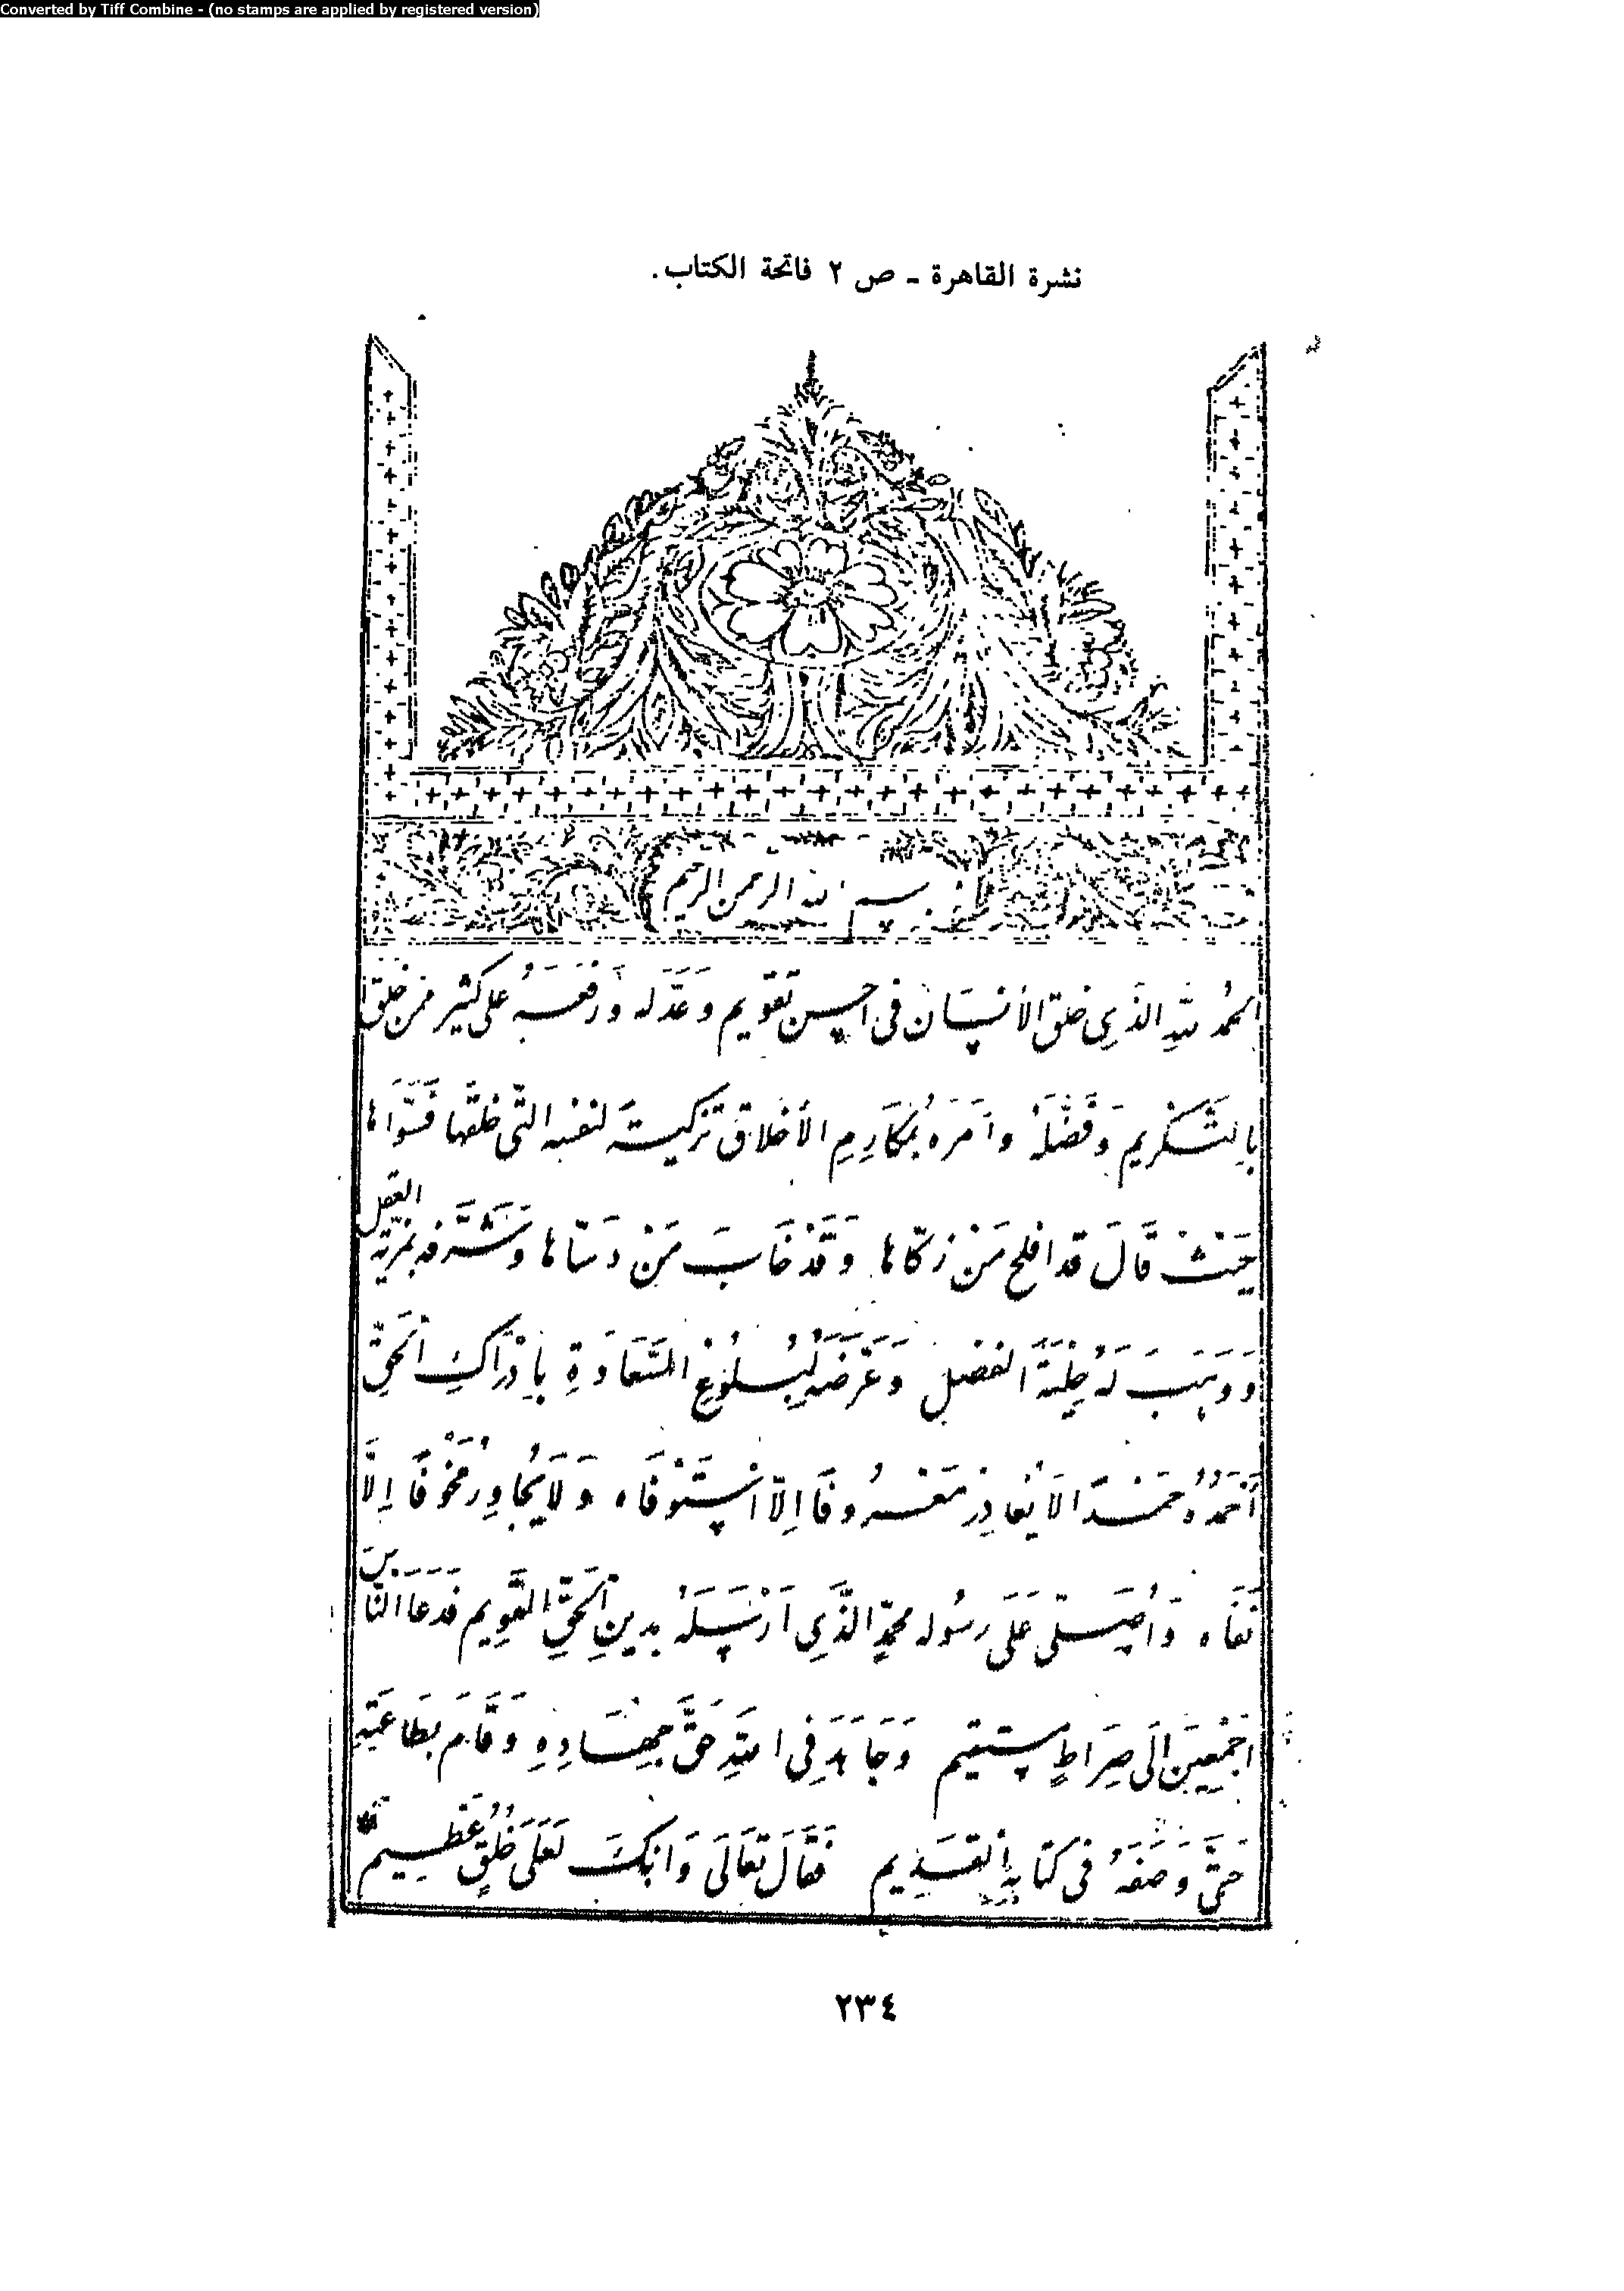 Converted by Tiff Combine - (no stamps are applied by registered version)
نشرة القاهرة ـ ص ٢ فاتحة الكتاب.
بسم الله الرحمن الرحيم
الحمد للهِ الذي خلق الأنسَان فى احسن تقويم وَعَدَّلَه وَرفعَهُ على كثير ممن خلق
بالتَّكْريم وَفَضَّلَهُ وامَرَهُ بمكَارِمِ الأخلاق تزكيَةً لنفسه التّى خلقها فَسَوَّاها
حَيْثُ قَالَ قد افلح مَنْ زكّاها وَقَدْ خَابَ مَنْ دَسّاها وَشَرَّفه بمزيّة العقل
وَوَهَبَ لَهُ حِلْيَةَ الفضل وَعَرَّضَه لِبُلُوغِ السَّعَادَةِ بِإِدْرَاكِ الحَقِّ
أَحْمَدُهُ حَمْداً لاَ يُغادِرُ مَعْرُوفًا إِلاّ اسْتَوْفَاه وَلاَ يُجاوِرُ مَخُوفًا إِلَّا
نَفَاه وَأُصَلّى عَلَى رسُوله محمّدٍ الَّذِي اَرْسَلَهُ بدينِ الحَقِّ القَوِيم فَدَعَا النَّاسَ
اَجْمَعِينَ اِلَى صِرَاطٍ مستقيم وَجَاهَدَ فِى اللهِ حَقَّ جِهَادِهِ وَقَامَ بطَاعَتِهِ
حَتَّى وَصَفَهُ فى كتابِهِ القَدِيم فَقَالَ تَعَالَى وَانكَ لَعَلَى خُلُقٍ عَظِيم
٢٣٤